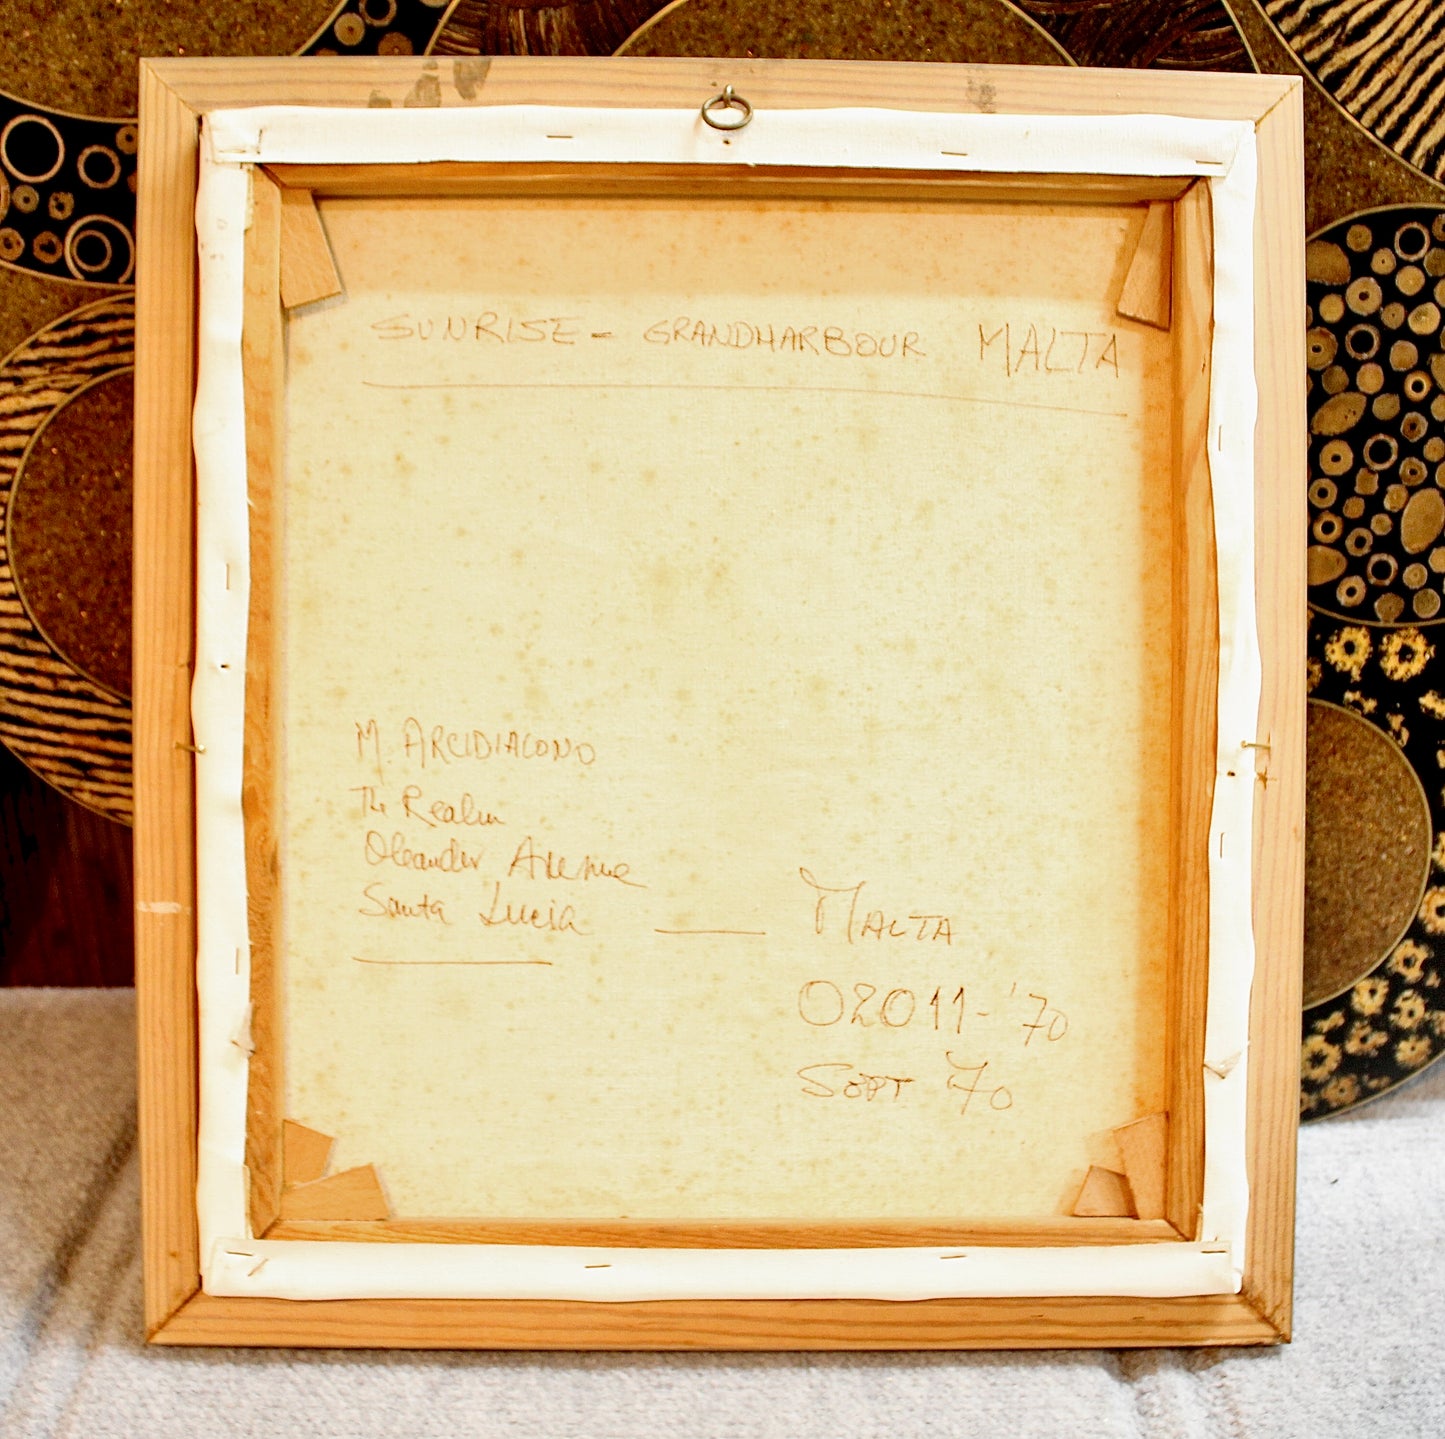 SUNRISE - GRANDHARBOUR MALTA
M. ARCIDIACONO
The Realm
Oleander Avenue
Santa Lucia — MALTA
02011-'70
SEPT 70